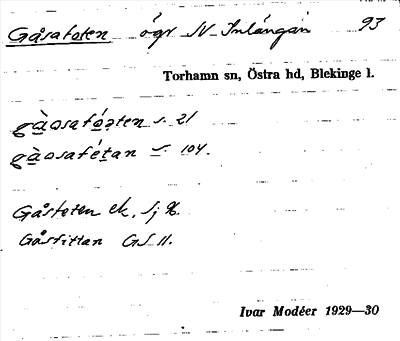 Gåsafoten ögr N Inlångan 93
Torhamn sn, Östra hd, Blekinge l.
gàosafóəten s. 21
gàosafétan – 104.
Gåsfoten ek. Sj K.
Gåsfittan GS 11.
Ivar Modéer 1929—30